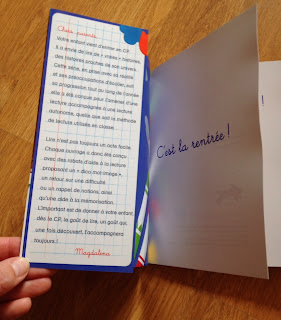 Chers parents,
Votre enfant vient d'entrer en CP.
Il a envie de lire de « vraies » histoires,
des histoires proches de son univers.
Cette série, en prise avec sa réalité
et ses préoccupations d'écolier, suit
sa progression tout au long de l'année :
elle a été conçue pour l'amener d'une
lecture accompagnée à une lecture
autonome, quelle que soit la méthode
de lecture utilisée en classe.
Lire n'est pas toujours un acte facile.
Chaque ouvrage a donc été conçu
avec des rabats d'aide à la lecture
proposant un « dico mot-image »,
un retour sur une difficulté
ou un rappel de notions, ainsi
qu'une aide à la mémorisation.
L'important est de donner à votre enfant,
dès le CP, le goût de lire, un goût qui,
une fois découvert, l'accompagnera
toujours !
Magdalena
C'est la rentrée !